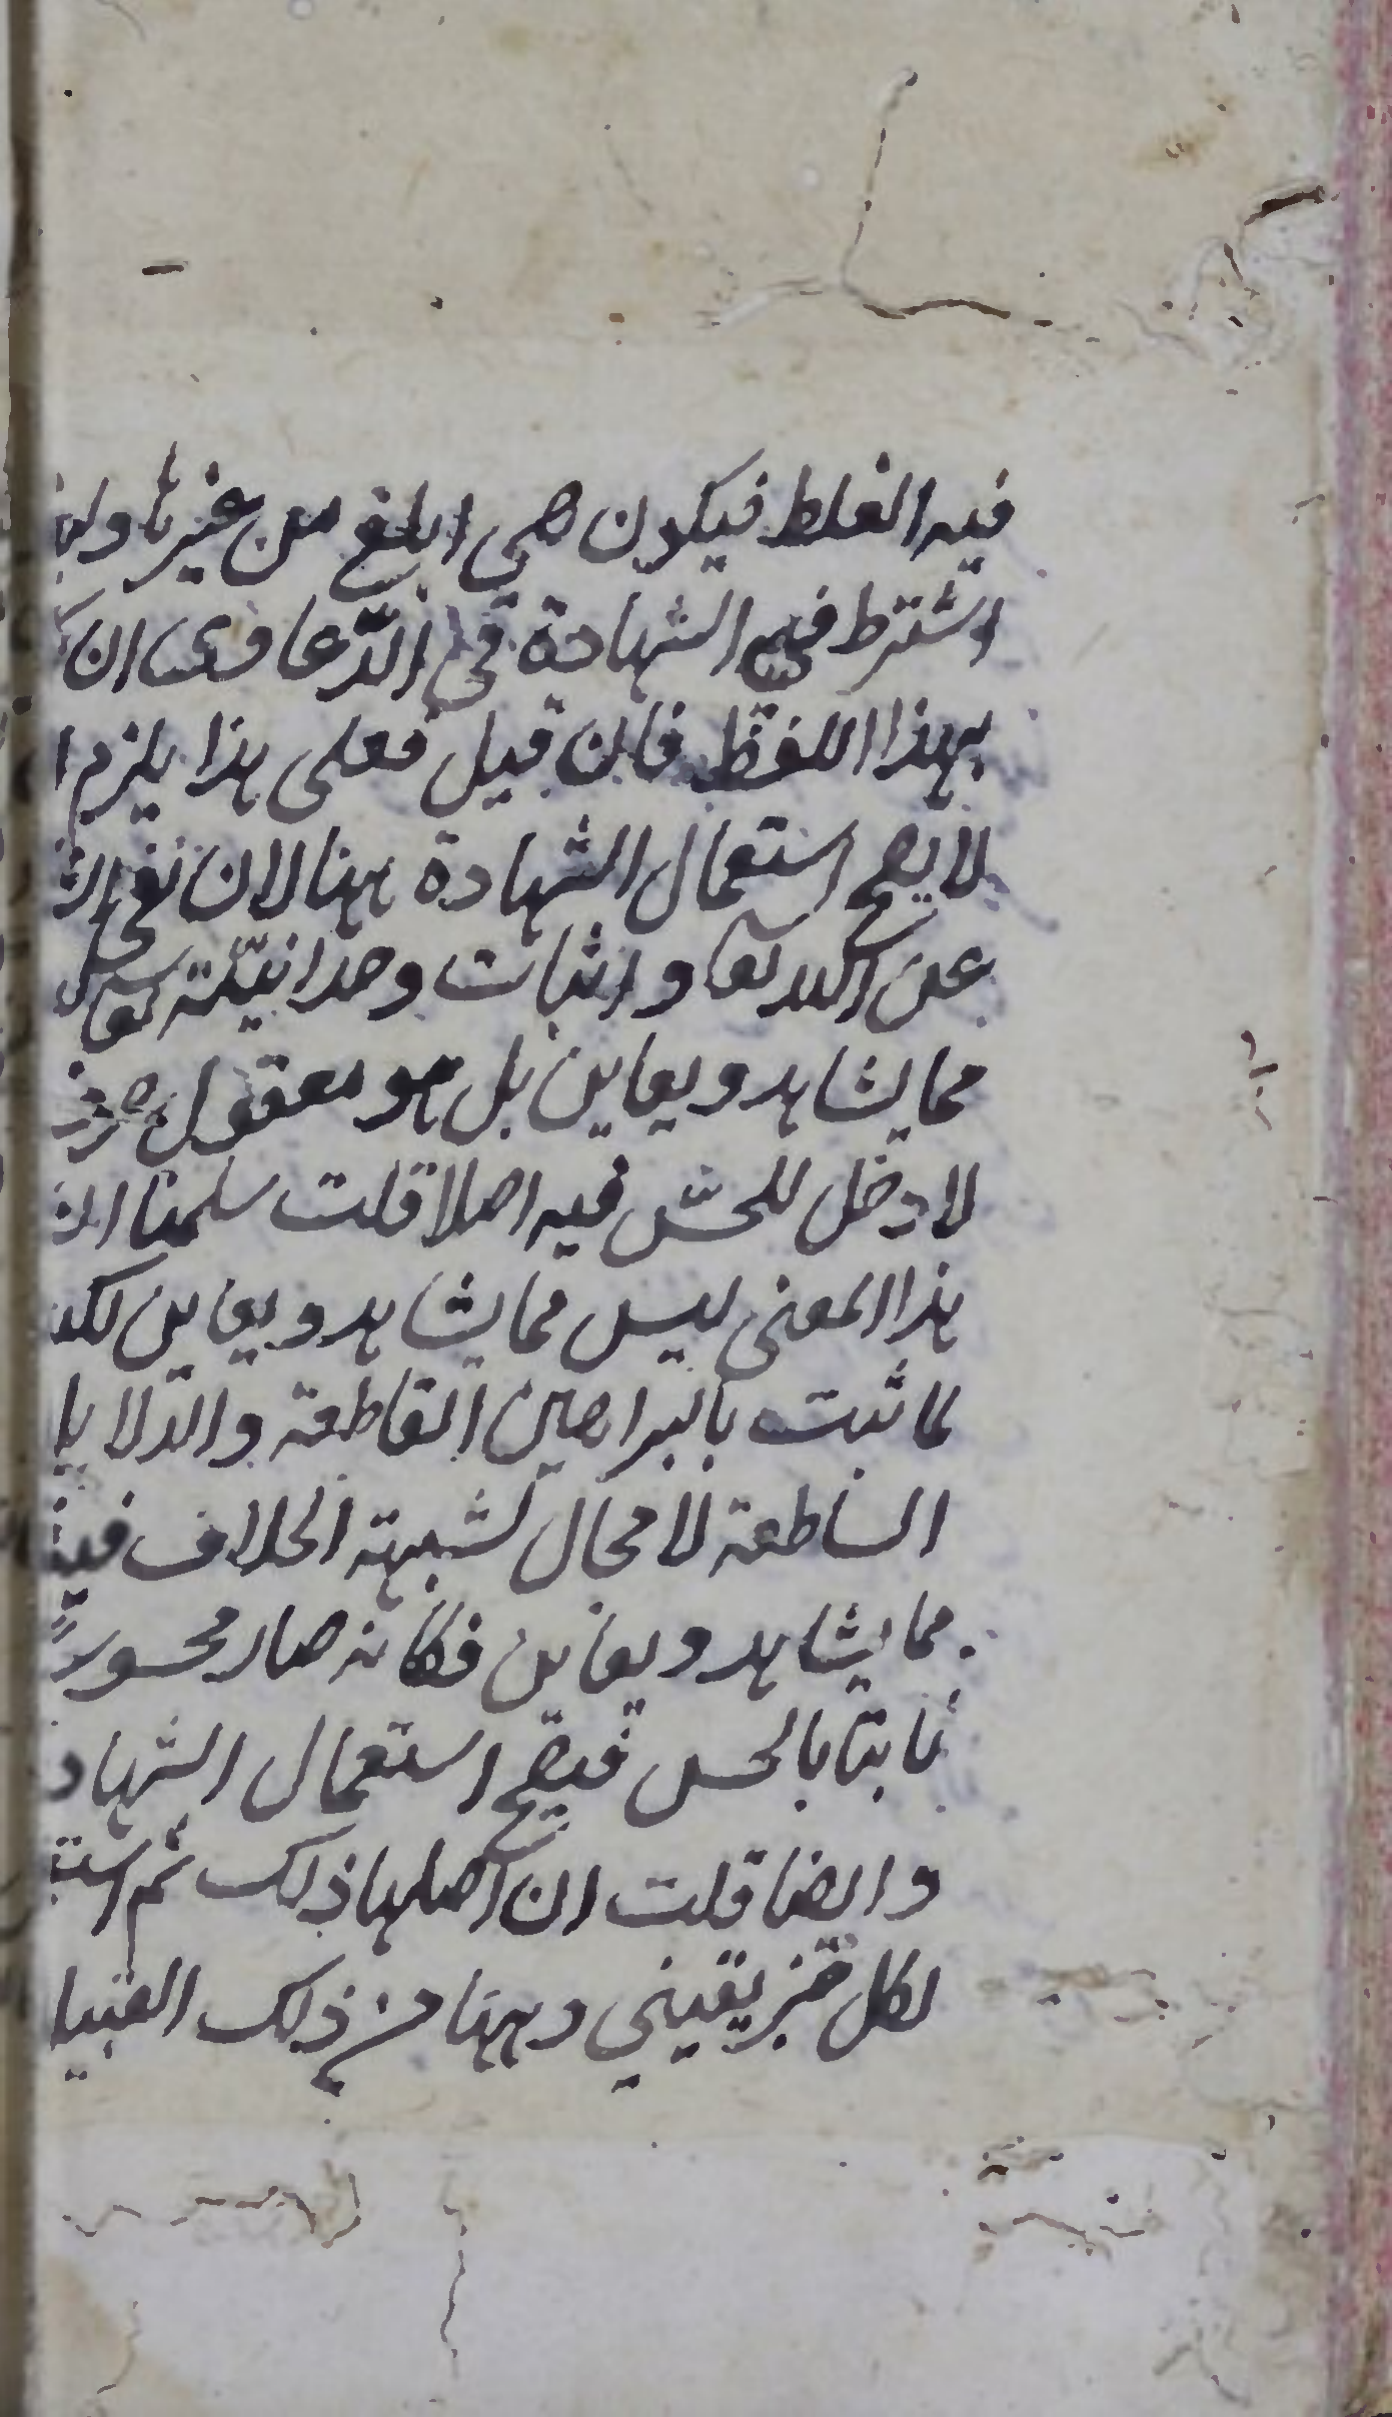 فيه الغلط فيكون هي ابلغ من غيرها ولهذا
اشترط فيه الشهادة في الدعاوى ان
بهذا اللفظ فان قيل فعلى هذا يلزم ا
لا يصح استعمال الشهادة ههنا لان نفي
عن الله تعا واثبات وحدانيّته تعا ليس
مما يشاهد ويعاين بل هو معقول صرف
لا دخل للحسّ فيه اصلا قلت سلمنا ان
هذا المعنى ليس مما يشاهد ويعاين لكن
لما ثبت بالبراهين القاطعة والدلايل
الساطعة لا مجال لشبهة الخلاف فيه
مما يشاهد ويعاين فكانه صار محسوسا
ثابتا بالحس فيصح استعمال الشهاد
وايضا قلت ان اصلها ذلك ثم است
لكل خبر يقيني وههنا من ذلك القبيل